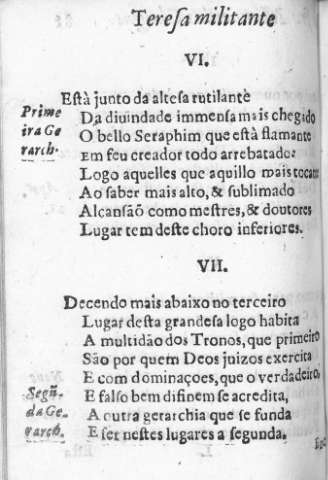 Teresa militante
VI.
Està junto da altesa rutilantè
Prime
ira Ge
rarch.
Da diuindade immensa mais chegido
O bello Seraphim que està flamante
Em feu creador todo arrebatado:
Logo aquelles que aquillo mais tocam
Ao saber mais alto, & sublimado
Alcansão como mestres, & doutores
Lugar tem deste choro inferiores.
VII.
Decendo mais abaixo no terceiro
Lugar desta grandesa logo habita
A multidão dos Tronos, que primeiro
São por quem Deos juizos exercita
E com dominaçoes, que o verdadeiro,
E falso bem difinem se acredita,
Segũ-
da Ge-
rarch.
A outra gerarchia que se funda
E ser nestes lugares a segunda.